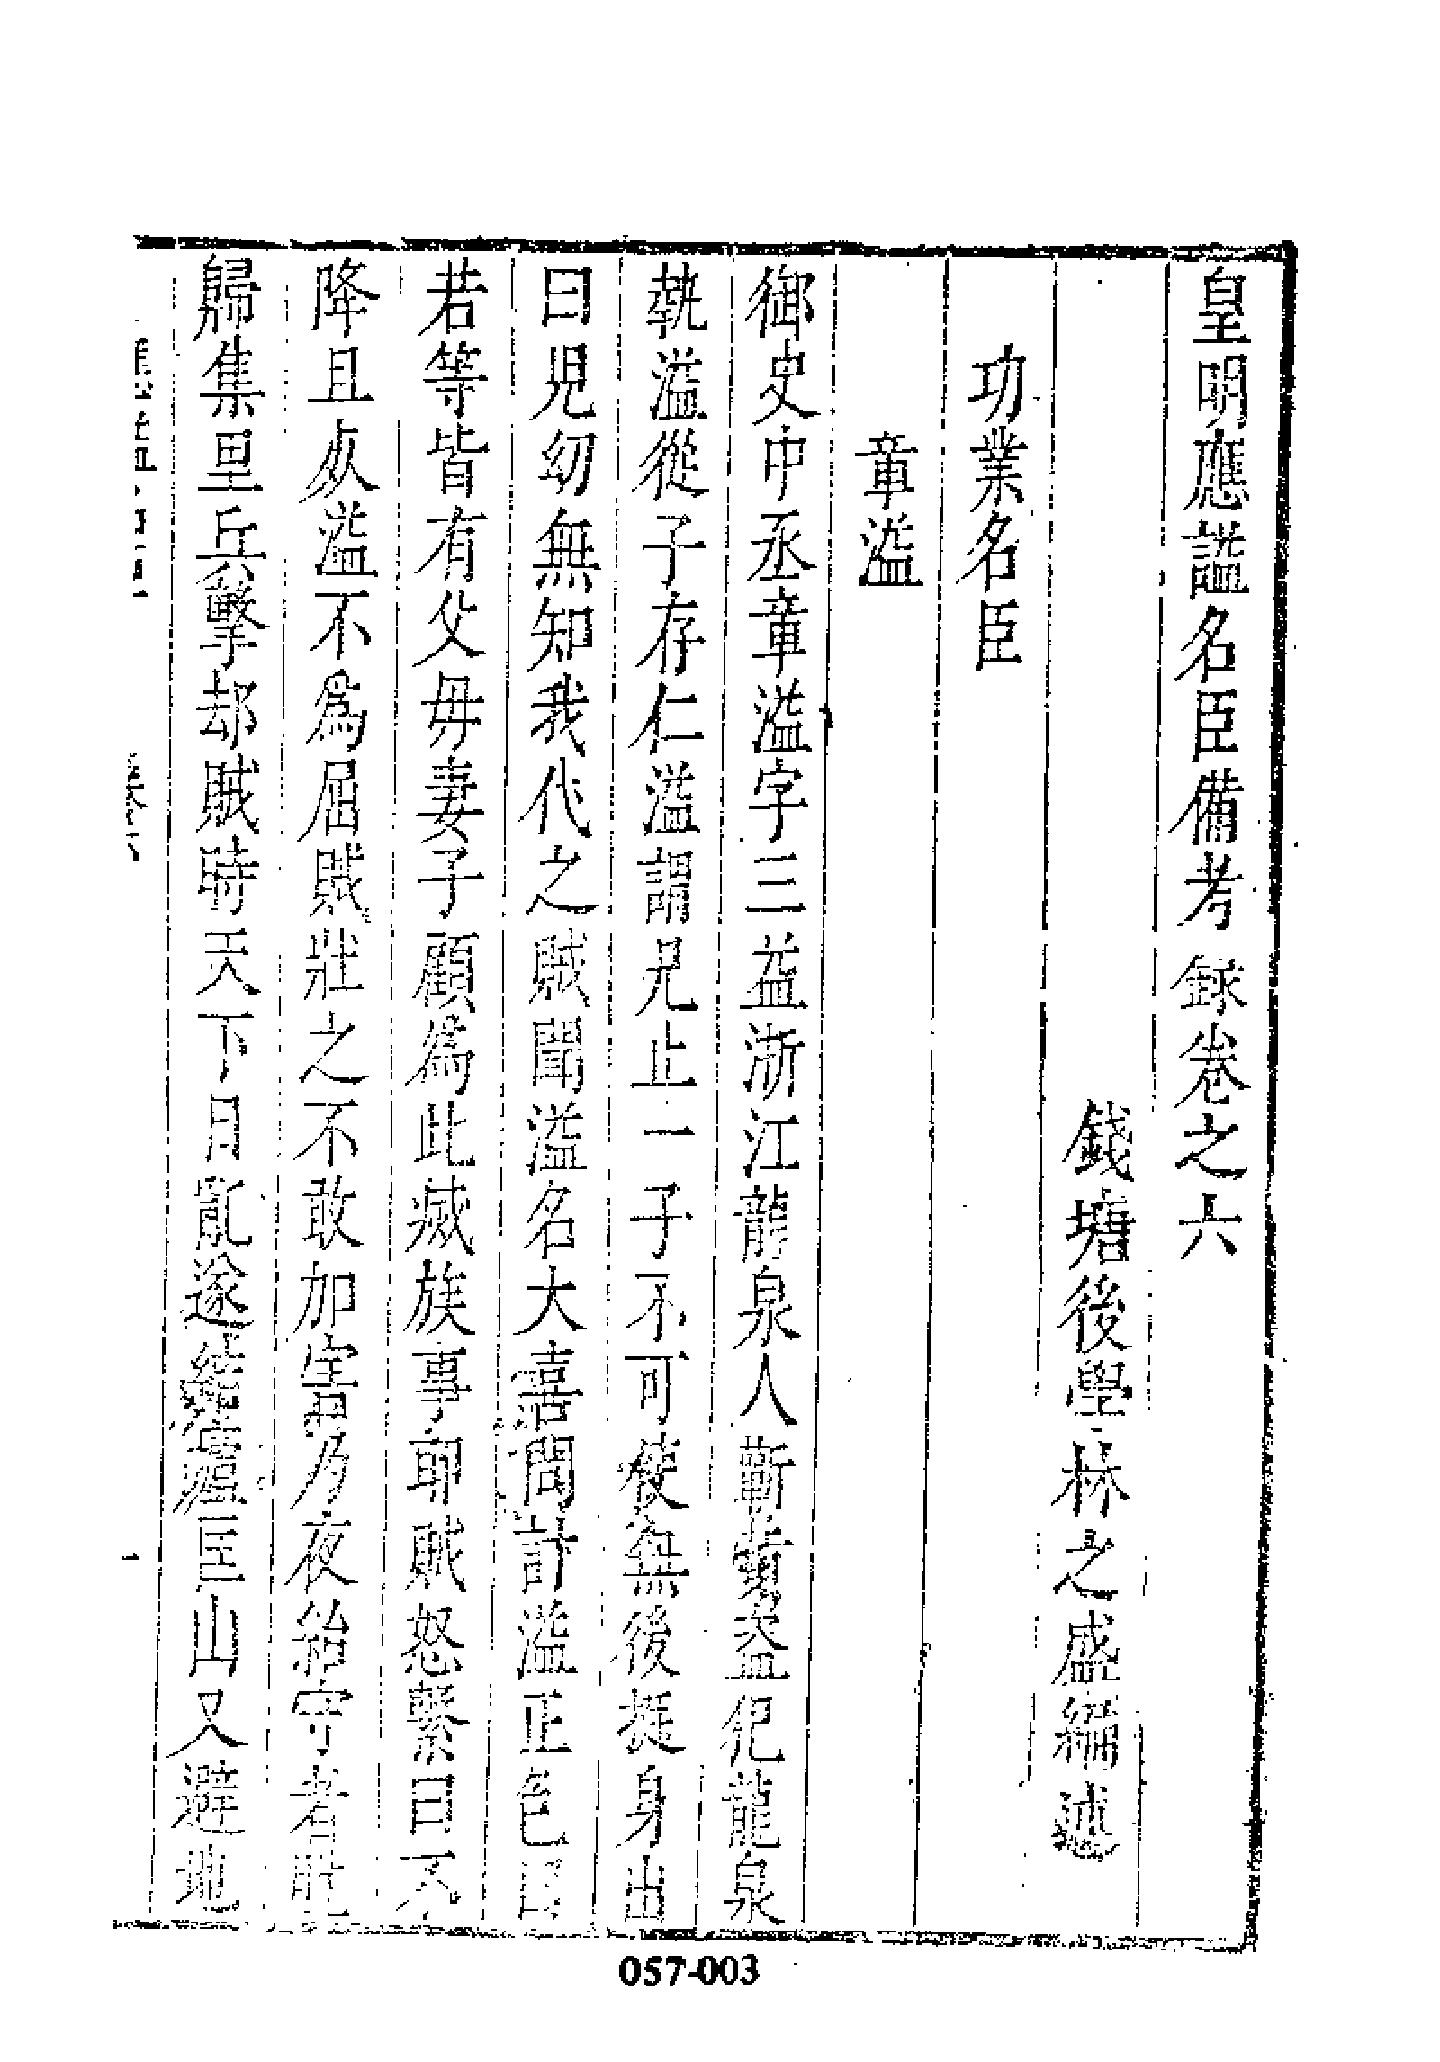 皇明應諡名臣備考錄卷之六
錢塘後學林之盛編述
功業名臣
章溢
御史中丞章溢字三益浙江龍泉人蘄黃盜犯龍泉
執溢從子存仁溢謂兄止一子不可使無後挺身出
曰兒幼無知我代之賊聞溢名大喜問計溢正色曰
若等皆有父母妻子顧為此滅族事耶賊怒繫曰不
降且殺溢不為屈賊壯之不敢加害乃夜紿守者脫
歸集里兵擊却賊時天下日亂遂結廬匡山又避地
卷六
一
057-003